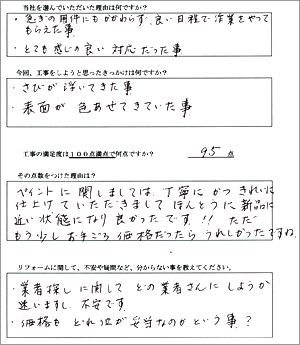 当社を選んでいただいた理由は何ですか?
・急ぎの用件にもかかわらず、良い日程で作業をやって
もらえた事
・とても感じの良い対応だった事
今回、工事をしようと思ったきっかけは何ですか?
・さびが浮いてきた事
・表面が色あせてきていた事
工事の満足度は100点満点で何点ですか? 95 点
その点数をつけた理由は?
ペイントに関しましては、丁寧にかつきれいに
仕上げていただきましてほんとうに新品に
近い状態になり良かったです!! ただ
もう少しお手ごろ価格だったらうれしかったですね。
リフォームに関して、不安や疑問など、分からない事を教えてください。
・業者探しに関してどの業者さんにしようか
迷いますし、不安です。
・価格もどれ位が妥当なのかという事?